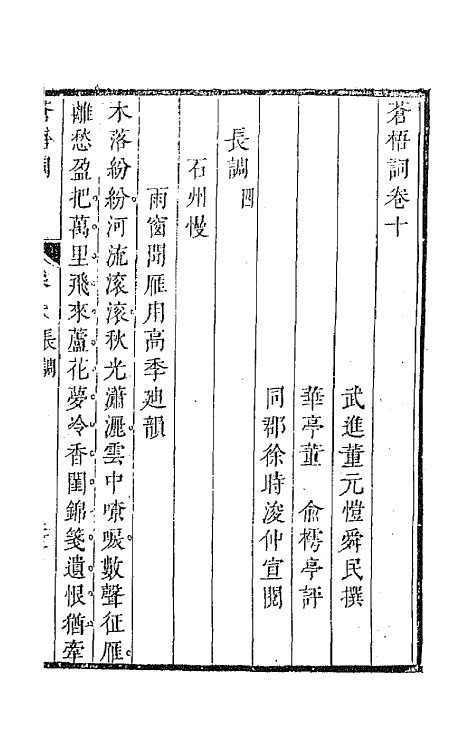 蒼梧詞卷十
武進董元愷舜民撰
華亭董　俞樗亭評
同郡徐時浚仲宣閱
長調四
石州慢
雨窗聞雁用高季廸韻
木落紛紛。河流滾滾。秋光瀟灑。雲中嘹唳。數聲征雁。
離愁盈把。萬里飛來。蘆花夢冷。香閨錦箋遺恨。猶牽
長調